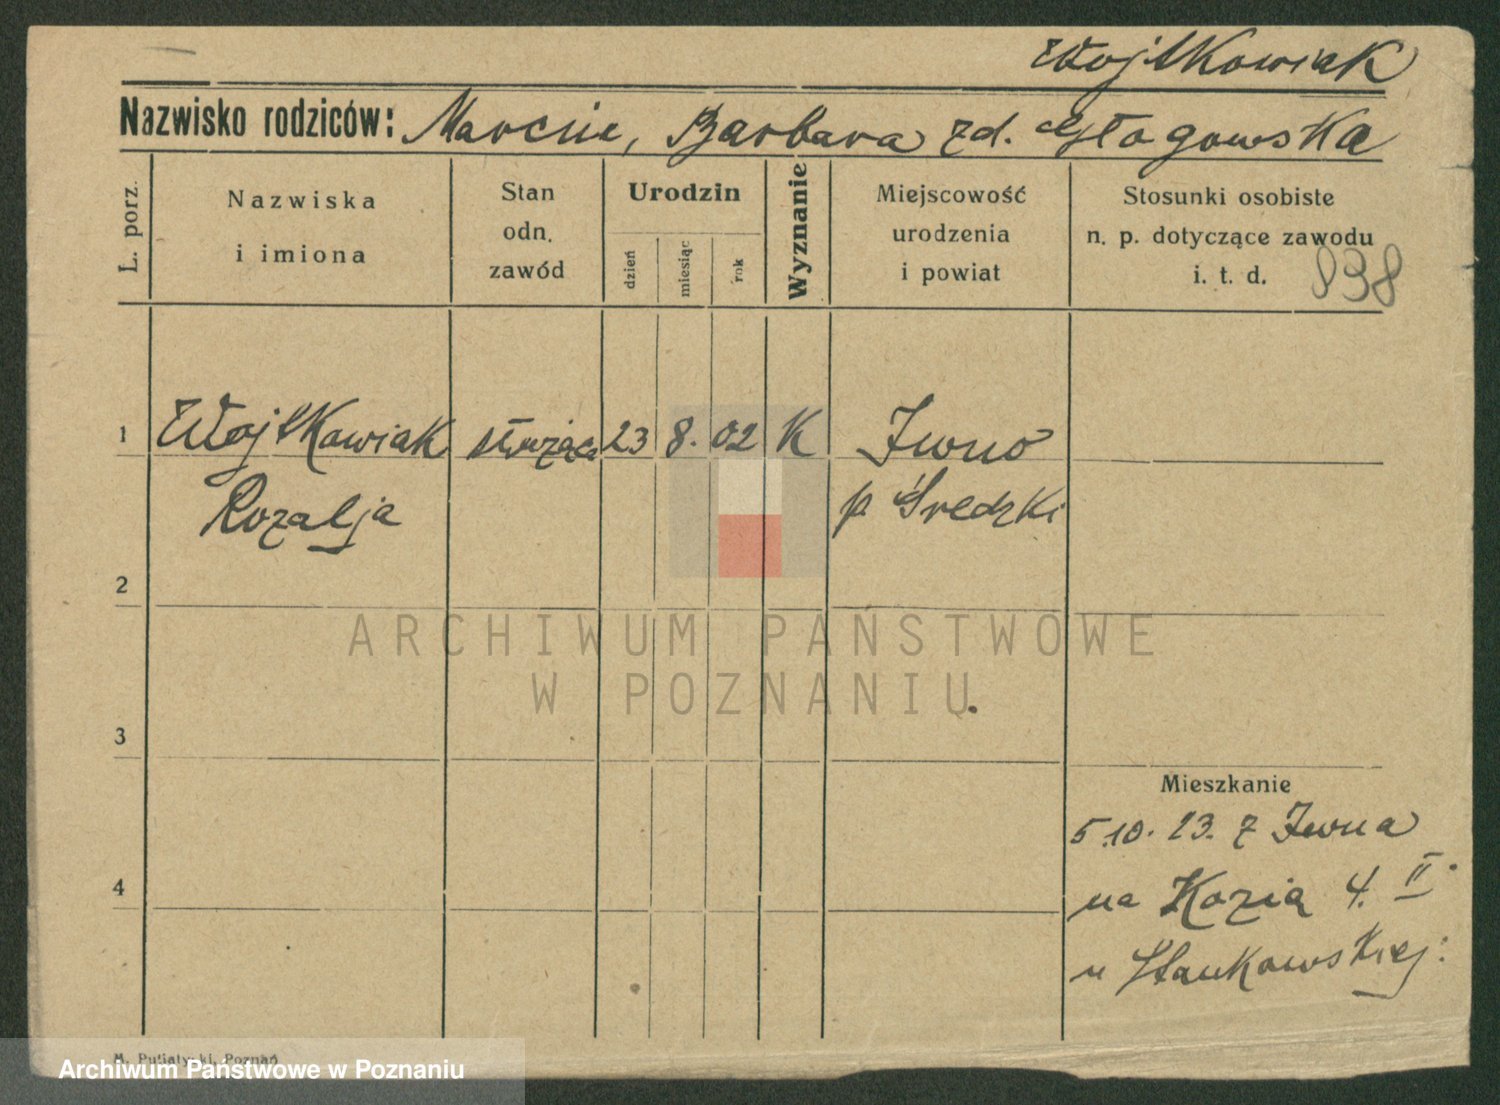 Wojtkowiak
Nazwisko rodziców: Marcin, Barbara zd. Głogowska
L. porz.
Nazwiska
i imiona
Stan
odn.
zawód
Urodzin
dzień
miesiąc
rok
Wyznanie
Miejscowość
urodzenia
i powiat
Stosunki osobiste
n. p. dotyczące zawodu
i. t. d.
938
1 Wojtkowiak służąca 23 8. 02 K Iwno
Rozalja p Średzki
2
3
4
ARCHIWUM PAŃSTWOWE
W POZNANIU
Mieszkanie
5.10.23. z Iwna
na Kozią 4. II.
u Stankowskiej:
M. Putiatycki, Poznań
Archiwum Państwowe w Poznaniu